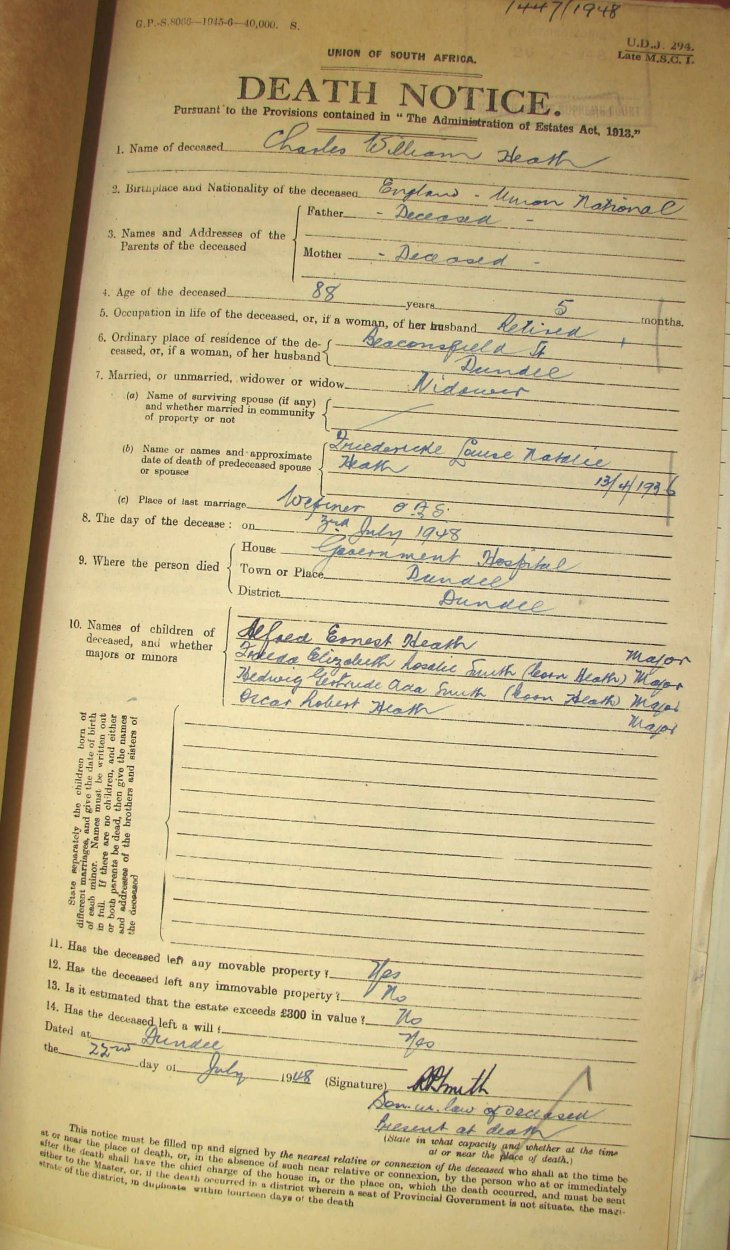 1447/1948
G.P.-S.8066—1945-6—40,000. S.
U.D.J. 294.
Late M.S.C. 1.
UNION OF SOUTH AFRICA.
DEATH NOTICE.
Pursuant to the Provisions contained in "The Administration of Estates Act, 1913."
1. Name of deceased Charles William Heath
2. Birthplace and Nationality of the deceased England - Union National
3. Names and Addresses of the Parents of the deceased
Father - Deceased -
Mother - Deceased -
4. Age of the deceased 88 years 5 months.
5. Occupation in life of the deceased, or, if a woman, of her husband Retired
6. Ordinary place of residence of the deceased, or, if a woman, of her husband
Beaconsfield St
Dundee
7. Married, or unmarried, widower or widow Widower
(a) Name of surviving spouse (if any) and whether married in community of property or not
(b) Name or names and approximate date of death of predeceased spouse or spouses
Friedericke Louise Natalie
Heath 13/4/1936
(c) Place of last marriage Wepener O.F.S.
8. The day of the decease: on 3rd July 1948
9. Where the person died
House Government Hospital
Town or Place Dundee
District Dundee
10. Names of children of deceased, and whether majors or minors
Alfred Ernest Heath Major
Frieda Elizabeth Rosalie Smith (born Heath) Major
Hedwig Gertrude Ada Smith (born Heath) Major
Oscar Robert Heath Major
State separately the children born of different marriages, and give the date of birth of each minor. Names must be written out in full. If there are no children, and either or both parents be dead, then give the names and addresses of the brothers and sisters of the deceased
11. Has the deceased left any movable property? Yes
12. Has the deceased left any immovable property? No
13. Is it estimated that the estate exceeds £300 in value? No
14. Has the deceased left a will? Yes
Dated at Dundee
the 22nd day of July 1948 (Signature) Smith
Son-in-law of deceased
Present at death
(State in what capacity and whether at the time at or near the place of death.)
This notice must be filled up and signed by the nearest relative or connexion of the deceased who shall at the time be
at or near the place of death, or, in the absence of such near relative or connexion, by the person who at or immediately
after the death shall have the chief charge of the house in, or the place on, which the death occurred, and must be sent
either to the Master, or, if the death occurred in a district wherein a seat of Provincial Government is not situate, the magi-
strate of the district, in duplicate within fourteen days of the death